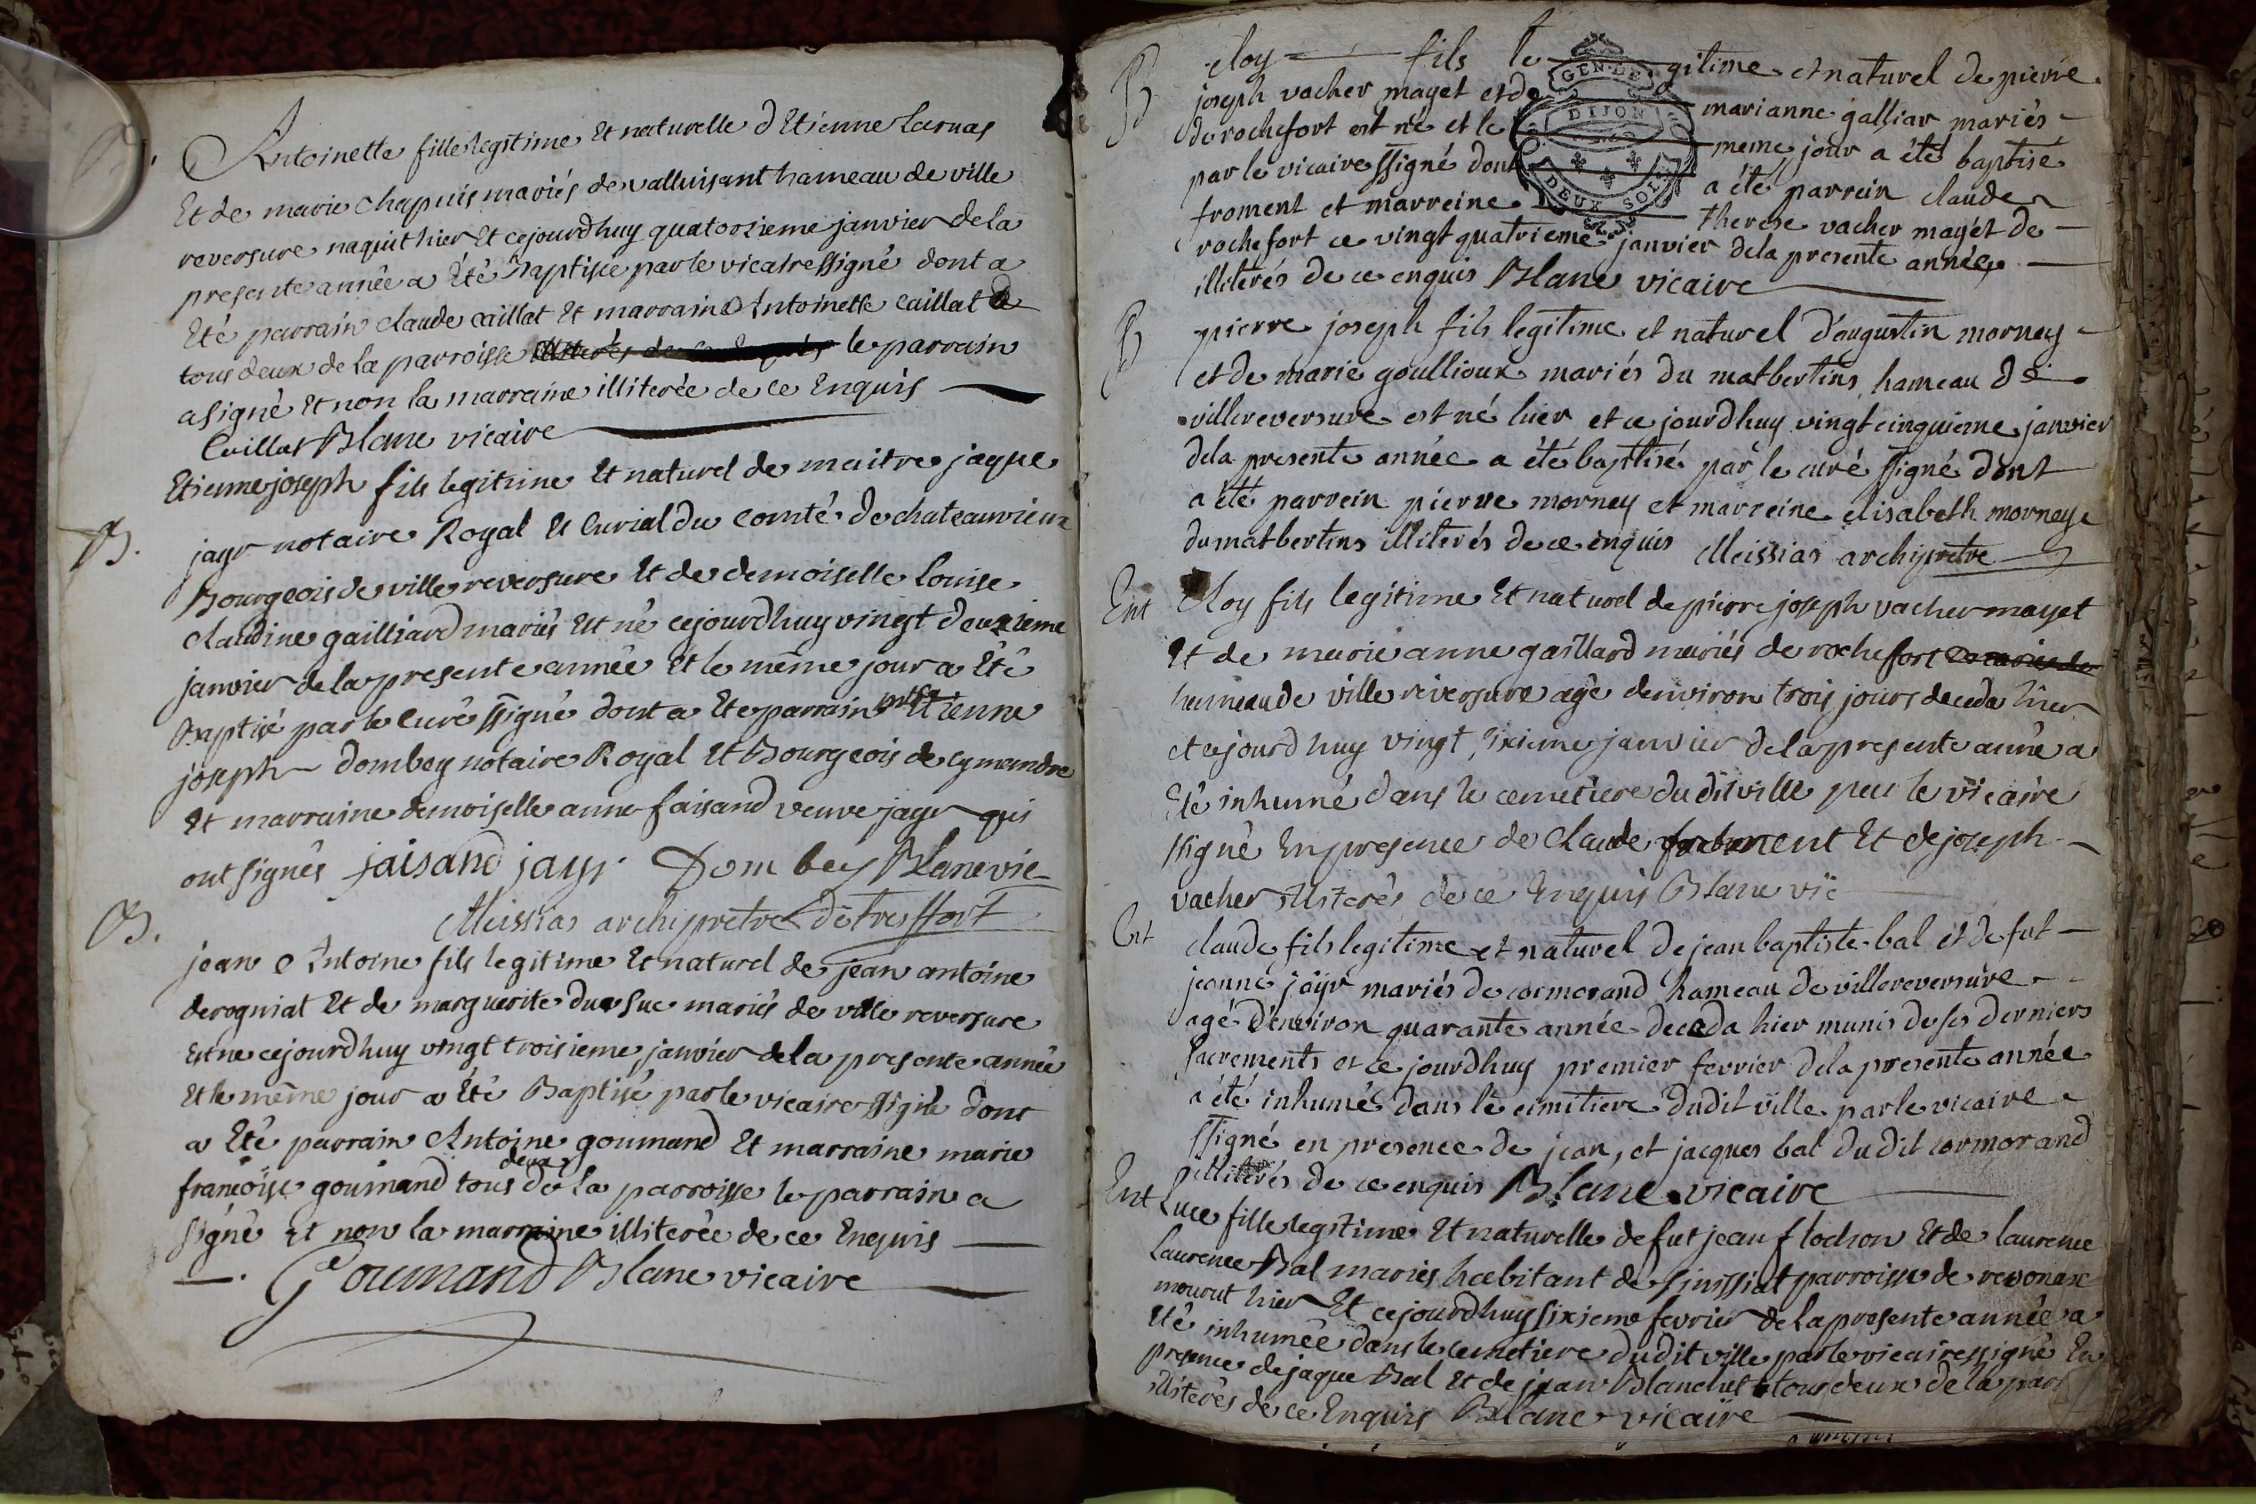 B.
Antoinette fille legitime Et naturelle d Etienne Larnas
Et de marie chapuis mariés de valluisant hameau de ville
reversure naquit hier Et cejourdhuy quatorzieme janvier dela
presente année a Eté Baptisée par le vicaire ssigné dont a
Eté parrain claude caillat Et marraine Antoinette caillat
tous deux de la parroisse le parrain
a signé Et non la marraine illiterée de ce Enquis
Caillat Blanc vicaire
B.
Etienne joseph fils legitime Et naturel de maitre jaque
jayr notaire Royal Et Curial du Comté de chateauvieux
Bourgeois de ville reversure Et de demoiselle louise
claudine gailliard mariés Est né cejourdhuy vingt deuxieme
janvier de la presente année Et le même jour a Eté
Baptisé par le curé ssigné dont a Ete parrain Etienne
joseph dombey notaire Royal Et Bourgeois de cymandre
Et marraine demoiselle anne faisand veuve jayr qui
ont signés faisand jayr Dombey Blanc vic
Meissias archipretre de treffort
B.
jean Antoine fils legitime Et naturel de jean antoine
derogniat Et de marguerite du suc mariés de ville reversure
Est né cejourdhuy vingt troisieme janvier de la presente année
Et le même jour a Eté Baptisé par le vicaire ssigné dont
a Eté parrain Antoine goumand Et marraine marie
françoise goumand tous deux de la parroisse le parrain a
signé Et non la marraine illiterée de ce Enquis
Goumand Blanc vicaire
B
eloy fils legitime et naturel de pierre
joseph vacher mayet et de marianne galliar mariés
de rochefort est né et le meme jour a été baptisé
par le vicaire ssigné dont a été parrein claude
froment et marreine therese vacher mayet de
rochefort ce vingt quatrieme janvier dela presente année
illiterés de ce enquis Blanc vicaire
GEN. DE
DIJON
DEUX SOLS
B
pierre joseph fils legitime et naturel d'augustin morney
et de marie goullioux mariés du matbertins hameau de
villereversure est né hier et ce jourdhuy vingt cinquieme janvier
dela presente année a été baptisé par le curé ssigné dont
a été parrein pierre morney et marreine elisabeth morney
du matbertins illiterés de ce enquis Meissias archipretre
Ent
Eloy fils legitime Et naturel de pierre joseph vacher mayet
Et de marie anne gaillard mariés de rochefort
hammeau de ville reversure agé denviron trois jours deceda hier
et cejourdhuy vingt sixieme janvier de la presente année a
Eté inhumé dans le cemetiere du dit ville par le vicaire
ssigné En presence de claude froment Et de joseph
vacher illiterés de ce Enquis Blanc vic
Ent
claude fils legitime et naturel de jean baptiste bal et de fut
jeanne jayr mariés de cormorand hameau de villereversure
agé d'environ quarante année deceda hier munis de ses derniers
sacrements et ce jourdhuy premier fevrier dela presente année
a été inhumé dans le cimitiere dudit ville par le vicaire
ssigné en presence de jean, et jacques bal du dit cormorand
illiterés de ce enquis Blanc vicaire
Ent
Luce fille legitime Et naturelle de fut jean flochon Et de laurence
laurence Bal mariés habitant de sinissiat parroisse de revonax
mourut hier Et cejourdhuy sixieme fevrier de la presente année a
Eté inhumée dans le cemetiere dudit ville par le vicaire ssigné En
presence de jaque Bal Et de jean Blanchet tous deux de la par
illiterés de ce Enquis Blanc vicaire